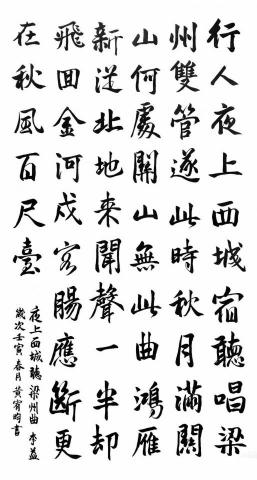 行人夜上西城宿聽唱梁
州雙管逐此時秋月滿關
山何處關山無此曲鴻雁
新從北地來聞聲一半却
飛回金河戍客腸應斷更
在秋風百尺臺
夜上西城聽梁州曲 李益
歲次壬寅春月黃宥昀書